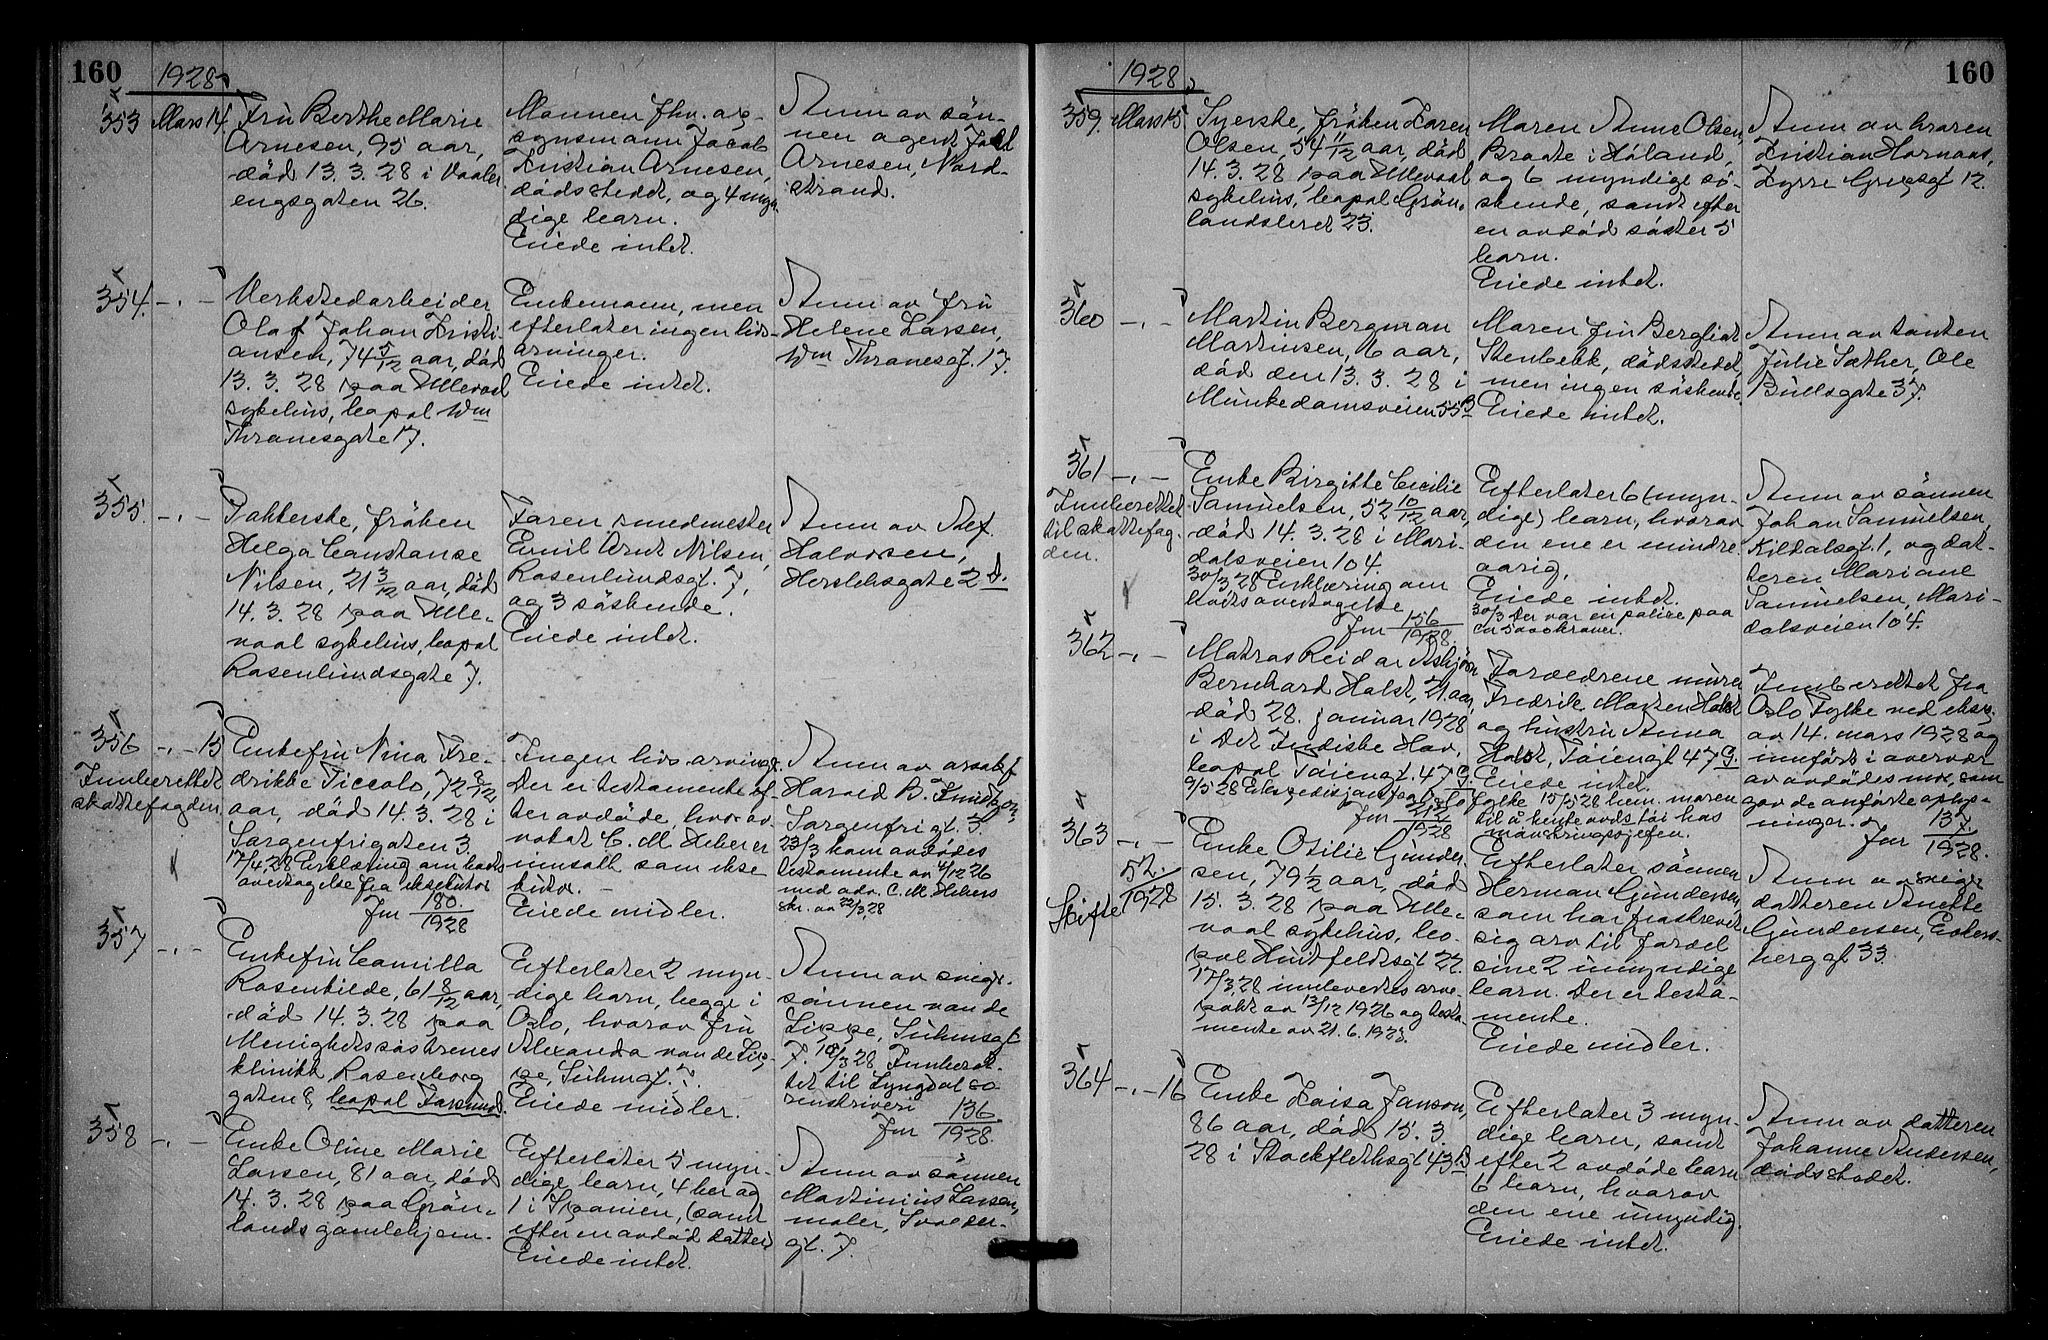 160
1928
353 Mars 14. Fru Berthe Marie
Arnesen, 95 aar,
död 13. 3. 28 i Vaaler
engsgaten 26.
Mannen fhv. op-
synsmann Jacob
Kristian Arnesen,
dödsstedet, og 4 myn
dige barn.
Eiede intet.
Anm av sön-
nen agent
Arnesen, Nord-
strand.
354. -.- Verkstedarbeider
Olaf Johan Kristi-
ansen, 74 5/12 aar, död
13. 3. 28 paa Ullevaal
sykehus, bopal Wm
Thranesgate 17.
Enkemann, men
efterlater ingen livs-
arvinger.
Eiede intet.
Anm av fru
Helene Larsen,
Wm Thranesgt. 17.
355. -.- Pakkerske, fröken
Helga Constanse
Nilsen, 21 3/12 aar, död
14. 3. 28 paa Ulle-
vaal sykehus, bopal
Rosenlundsgate 7.
Faren smedmester
Emil Arnt Nilsen,
Rosenlundsgt. 7,
og 3 söskende.
Eiede intet.
Anm av Alf.
Halvorsen,
Herslebsgate 2 D.
356 -.- 15 Enkefru Nina Fre-
Innberettet
skattefogden
drikke Piccolo, 72 8/12
aar, död 14. 3. 28 i
Sorgenfrigaten 3
17/4.28 Erklæring om bots
overtagelse fra eksekutor
Jnr 180/1928
Ingen livsarvinger.
Der er testamente ef-
ter avdöde, hvor ad
vokat C. M. Heber er
innsatt som ekse
kutor. -
Eiede midler.
Anm av arkitekt
Harald B.
Sorgenfrigt. 3.
23/3 kom avdödes
testamente av 4/12 26
med adv. C. M. Hebers
skr. av 22/3.28
357 -.- Enkefru Camilla
Rosenkilde, 61 8/12 aar,
död 14. 3. 28 paa
Menighetssöstrenes
klinikk Rosenborg
gaten 8, bopal Farsund.
Efterlater 2 myn-
dige barn, begge i
Oslo, hvorav fru
Alexandra von de Lip-
pe, Suhmsgt. 7.
Eiede midler.
Anm av sviger-
sönnen von de
Lippe, Suhmsgt.
7. 16/3 28 Innberet-
tet til Lyngdal so
renskriveri
Jnr 136/1928.
358 -.- Enke Oline Marie
Larsen, 81 aar, död
14. 3. 28 paa Grön-
lands gamlehjem.
Efterlater 5 myn-
dige barn, 4 her og
1 i Spanien, samt
efter en avdöd datter
Eiede intet.
Anm av sönnen
Martinius Larsen,
maler, Svolder-
gt. 7.
160
1928
359. Mars 15 Syerske, fröken Karen
Olsen, 54 11/12 aar, död
14. 3. 28 paa Ullevaal
sykehus, bopal Grön-
landsleret 23.
Moren Anne Olsen,
Braate i Höland,
og 6 myndige sö-
skende, samt efter
en avdöd söster 5
barn.
Eiede intet.
Anm av broren
Kristian Hornaas,
Kyrre Grepsgt 12.
360 -.- Martin Bergman
Martinsen, 6 aar,
död den 13. 3. 28 i
Munkedamsveien 55 B
Moren fru Bergliot
Stenbekk, dödsstedet,
men ingen söskende.
Eiede intet.
Anm av tanten
Julie Sæther, Ole
Bullsgate 37.
361 -.- Enke Birgitte Cecilie
Innberettet
til skattefog-
den.
Samuelsen, 52 10/12 aar,
död 14. 3. 28 i Mari-
dalsveien 104.
30/3.28 Erklæring om
bots overtagelse
Jnr 156/1928.
Efterlater 6 (myn-
dige) barn, hvorav
den ene er mindre
aarig.
Eiede intet.
30/3 Der var en polise paa
en 5000 kroner.
Anm av sönnen
Johan Samuelsen,
Kildalsgt. 1, og dat-
teren Mariane
Samuelsen, Mari-
dalsveien 104.
362 -.- Matros Reidar Asbjörn
Bernhard Holst, 21 aar,
död 28. januar 1928
i Det Indiske Hav,
bopal Töiengt. 47 G.
9/5 28 Ekspedisjon fra Oslo fylke 15/5 28 hem. moren
Jnr 212/1928
til å hente avds töi hos
mönstringssjefen.
Forældrene murer
Fredrik Morten Holst
og hustru Anna
Holst, Töiengt 47 G.
Eiede intet.
Innberettet fra
Oslo Fylke ved eksp.
av 14. mars 1928 og
innfört i overvær
av avdödes mor, som
gav de anförte oplys-
ninger.
Jnr 137/1928.
363 -.- Enke Otilie Gunder-
Skifte 52/1928
sen, 79 1/2 aar, död
15. 3. 28 paa Ulle-
vaal sykehus, bo-
pal Huitfeldtsgt 22.
17/3.28 innlevertes arve-
pakt av 13/12 1926 og testa
mente av 21. 6. 1923.
Efterlater sönnen
Herman Gundersen,
som har fraskrevet
sig arv til fordel
sine 2 umyndige
barn. Der er testa-
mente.
Eiede midler.
Anm av sviger
datteren Anette
Gundersen, Eckers-
berggt. 33.
364 -.- 16 Enke Kaisa Janson,
86 aar, död 15. 3.
28 i Stockflethsgt 43 B
Efterlater 3 myn-
dige barn, samt
efter 2 avdöde barn
6 barn, hvorav
den ene umyndig.
Eiede intet.
Anm av datteren
Johanne Andersen,
dödsstedet.